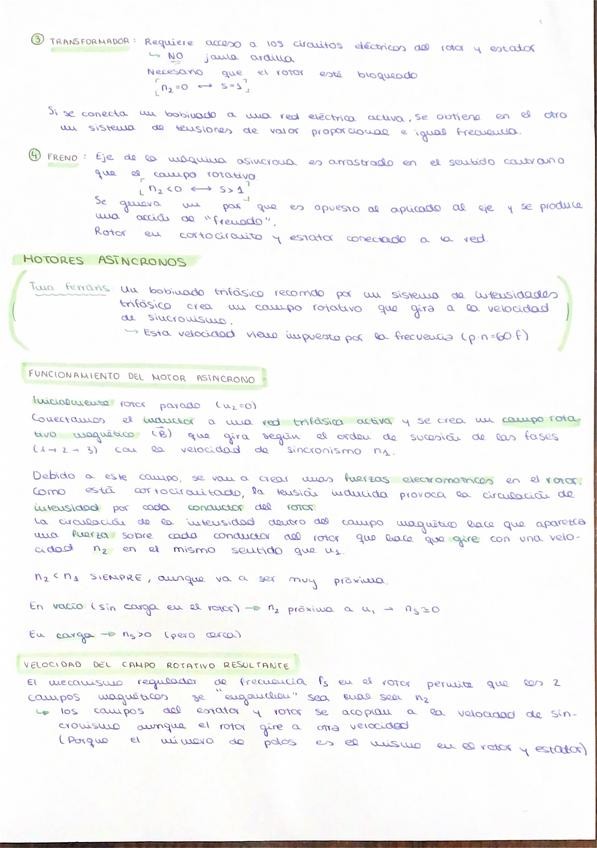 ③ TRANSFORMADOR: Requiere acceso a los circuitos eléctricos del rotor y estator
↳ NO jaula ardilla
Necesario que el rotor esté bloqueado
[n₂=0 ↔ S=1]
Si se conecta un bobinado a una red eléctrica activa, se obtiene en el otro
un sistema de tensiones de valor proporcional e igual frecuencia.
④ FRENO: Eje de la máquina asíncrona es arrastrado en el sentido contrario
que el campo rotativo
[n₂<0 ↔ S>1]
Se genera un par que es opuesto al aplicado al eje y se produce
una acción de "frenado".
Rotor en cortocircuito y estator conectado a la red.
MOTORES ASÍNCRONOS
Tma Ferraris Un bobinado trifásico recorrido por un sistema de intensidades
trifásico crea un campo rotativo que gira a la velocidad
de sincronismo.
→ Esta velocidad viene impuesta por la frecuencia (p·n=60f)
FUNCIONAMIENTO DEL MOTOR ASÍNCRONO
Inicialmente rotor parado (n₂=0)
Conectamos el inductor a una red trifásica activa y se crea un campo rota-
tivo magnético (B) que gira según el orden de sucesión de las fases
(1→2→3) con la velocidad de sincronismo n₁.
Debido a este campo, se van a crear unas fuerzas electromotrices en el rotor.
Como está cortocircuitado, la tensión inducida provoca la circulación de
intensidad por cada conductor del rotor.
La circulación de la intensidad dentro del campo magnético hace que aparezca
una fuerza sobre cada conductor del rotor que hace que gire con una velo-
cidad n₂ en el mismo sentido que n₁.
n₂<n₁ SIEMPRE, aunque va a ser muy próxima.
En vacío (sin carga en el rotor) → n₂ próxima a n₁ → nₛ≥0
En carga → nₛ>0 (pero cerca)
VELOCIDAD DEL CAMPO ROTATIVO RESULTANTE
El mecanismo regulador de frecuencia fₛ en el rotor permite que los 2
campos magnéticos se "enganchen" sea cual sea n₂
↳ los campos del estator y rotor se acoplan a la velocidad de sin-
cronismo aunque el rotor gire a otra velocidad
(Porque el número de polos es el mismo en el rotor y estator)